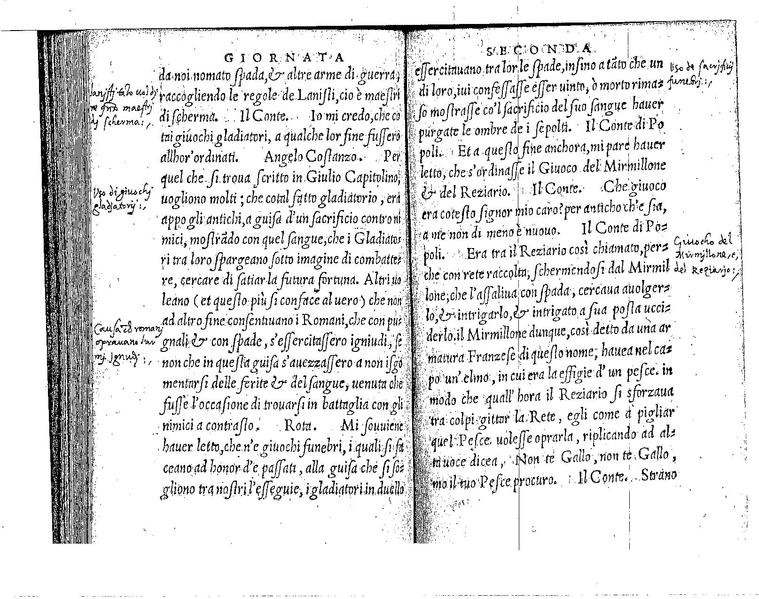 GIORNATA
da noi nomato spada, & altre arme di guerra;
raccogliendo le regole de Lanisti, cio è maestri
di scherma. Il Conte. Io mi credo, che co
tai giuochi gladiatori, a qualche lor fine fussero
allhor' ordinati. Angelo Costanzo. Per
quel che si trova scritto in Giulio Capitolino,
vogliono molti; che cotal fatto gladiatorio, era
appo gli antichi, a guisa d'un sacrificio contro ni
mici, mostrãdo con quel sangue, che i Gladiato
ri tra loro spargeano sotto imagine di combatte-
re, cercare di satiar la futura fortuna. Altri uo
leano (et questo più si conface al uero) che non
ad altro fine consentuano i Romani, che con pu-
gnali & con spade, s'essercitassero igniudi, se
non che in questa guisa s'auezzassero a non isgo
mentarsi delle ferite & del sangue, venuta che
fusse l'occasione di trovarsi in battaglia con gli
nimici a contrasto. Rota. Mi souuiene
hauer letto, che n'e giuochi funebri, i quali si fa
ceano ad honor d'e passati, alla guisa che si so-
gliono tra nostri l'esseguie, i gladiatori in duello
Uso di giuochi
gladiatorij:,
Causa ch romani
opravano lar
mi ignudi:,
SECONDA
essercitauano tra lor le spade, insino a tãto che un
di loro, iui confessasse esser uinto, ò morto rima-
so mostrasse co'l sacrificio del suo sangue hauer
purgate le ombre de i sepolti. Il Conte di Po
poli. Et a questo fine anchora, mi pare hauer
letto, che s'ordinasse il Giuoco del Mirmillone
& del Reziario. Il Conte. Che giuoco
era cotesto signor mio caro? per anticho ch'e sia,
a me non di meno è nuouo. Il Conte di Po-
poli. Era tra il Reziario così chiamato, per-
che con rete raccolta, schermendosi dal Mirmil
lone, che l'assaliua con spada, cercaua auolger-
lo, & intrigarlo, & intrigato a sua posta ucci-
derlo. il Mirmillone dunque, così detto da una ar
matura Franzese di questo nome; hauea nel ca-
po un'elmo, in cui era la effigie d'un pesce. in
modo che quall' hora il Reziario si sforzaua
tra colpi gittar la Rete, egli come a pigliar
quel Pesce uolesse oprarla, riplicando ad al-
ta uoce dicea, Non te Gallo, non te Gallo,
mo il tuo Pesce procuro. Il Conte. Strano
Uso de sacrifitij
funebri:,
Giuocho del
Mirmillone, e,
del Reziario:,